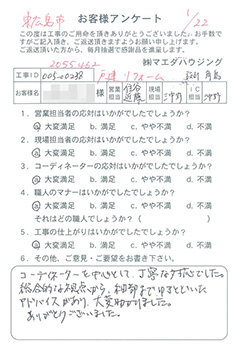 東広島市
お客様アンケート 1/22
この度は工事のご用命を頂きありがとうございました。お手数で
すがご記入頂き、ご返送頂きますようお願い申し上げます。
ご返送頂いた方から、毎月抽選で粗品進呈します。
2055462 ㈱マエダハウジング
工事ID 005-0038 戸建 リフォーム
お客様名 様 営業担当 現場担当 IC担当
1. 営業担当者の応対はいかがでしたでしょうか?
a 大変満足 b. 満足 c. やや不満 d. 不満
2. 現場担当者の応対はいかがでしたでしょうか?
a 大変満足 b. 満足 c. やや不満 d. 不満
3. コーディネーターの応対はいかがでしたでしょうか?
a 大変満足 b. 満足 c. やや不満 d. 不満
4. 職人のマナーはいかがでしたでしょうか?
a 大変満足 b. 満足 c. やや不満 d. 不満
それはどの職人でしょうか?( )
5. 工事の仕上がりはいかがでしたでしょうか?
a 大変満足 b. 満足 c. やや不満 d. 不満
6. その他、ご意見・ご要望をお書き下さい。
コーディネーターを中心として、丁寧な対応でした。
総合的な視点から、細部までゆきとどいた
アドバイスがあり、大変助かりました。
ありがとうございました。